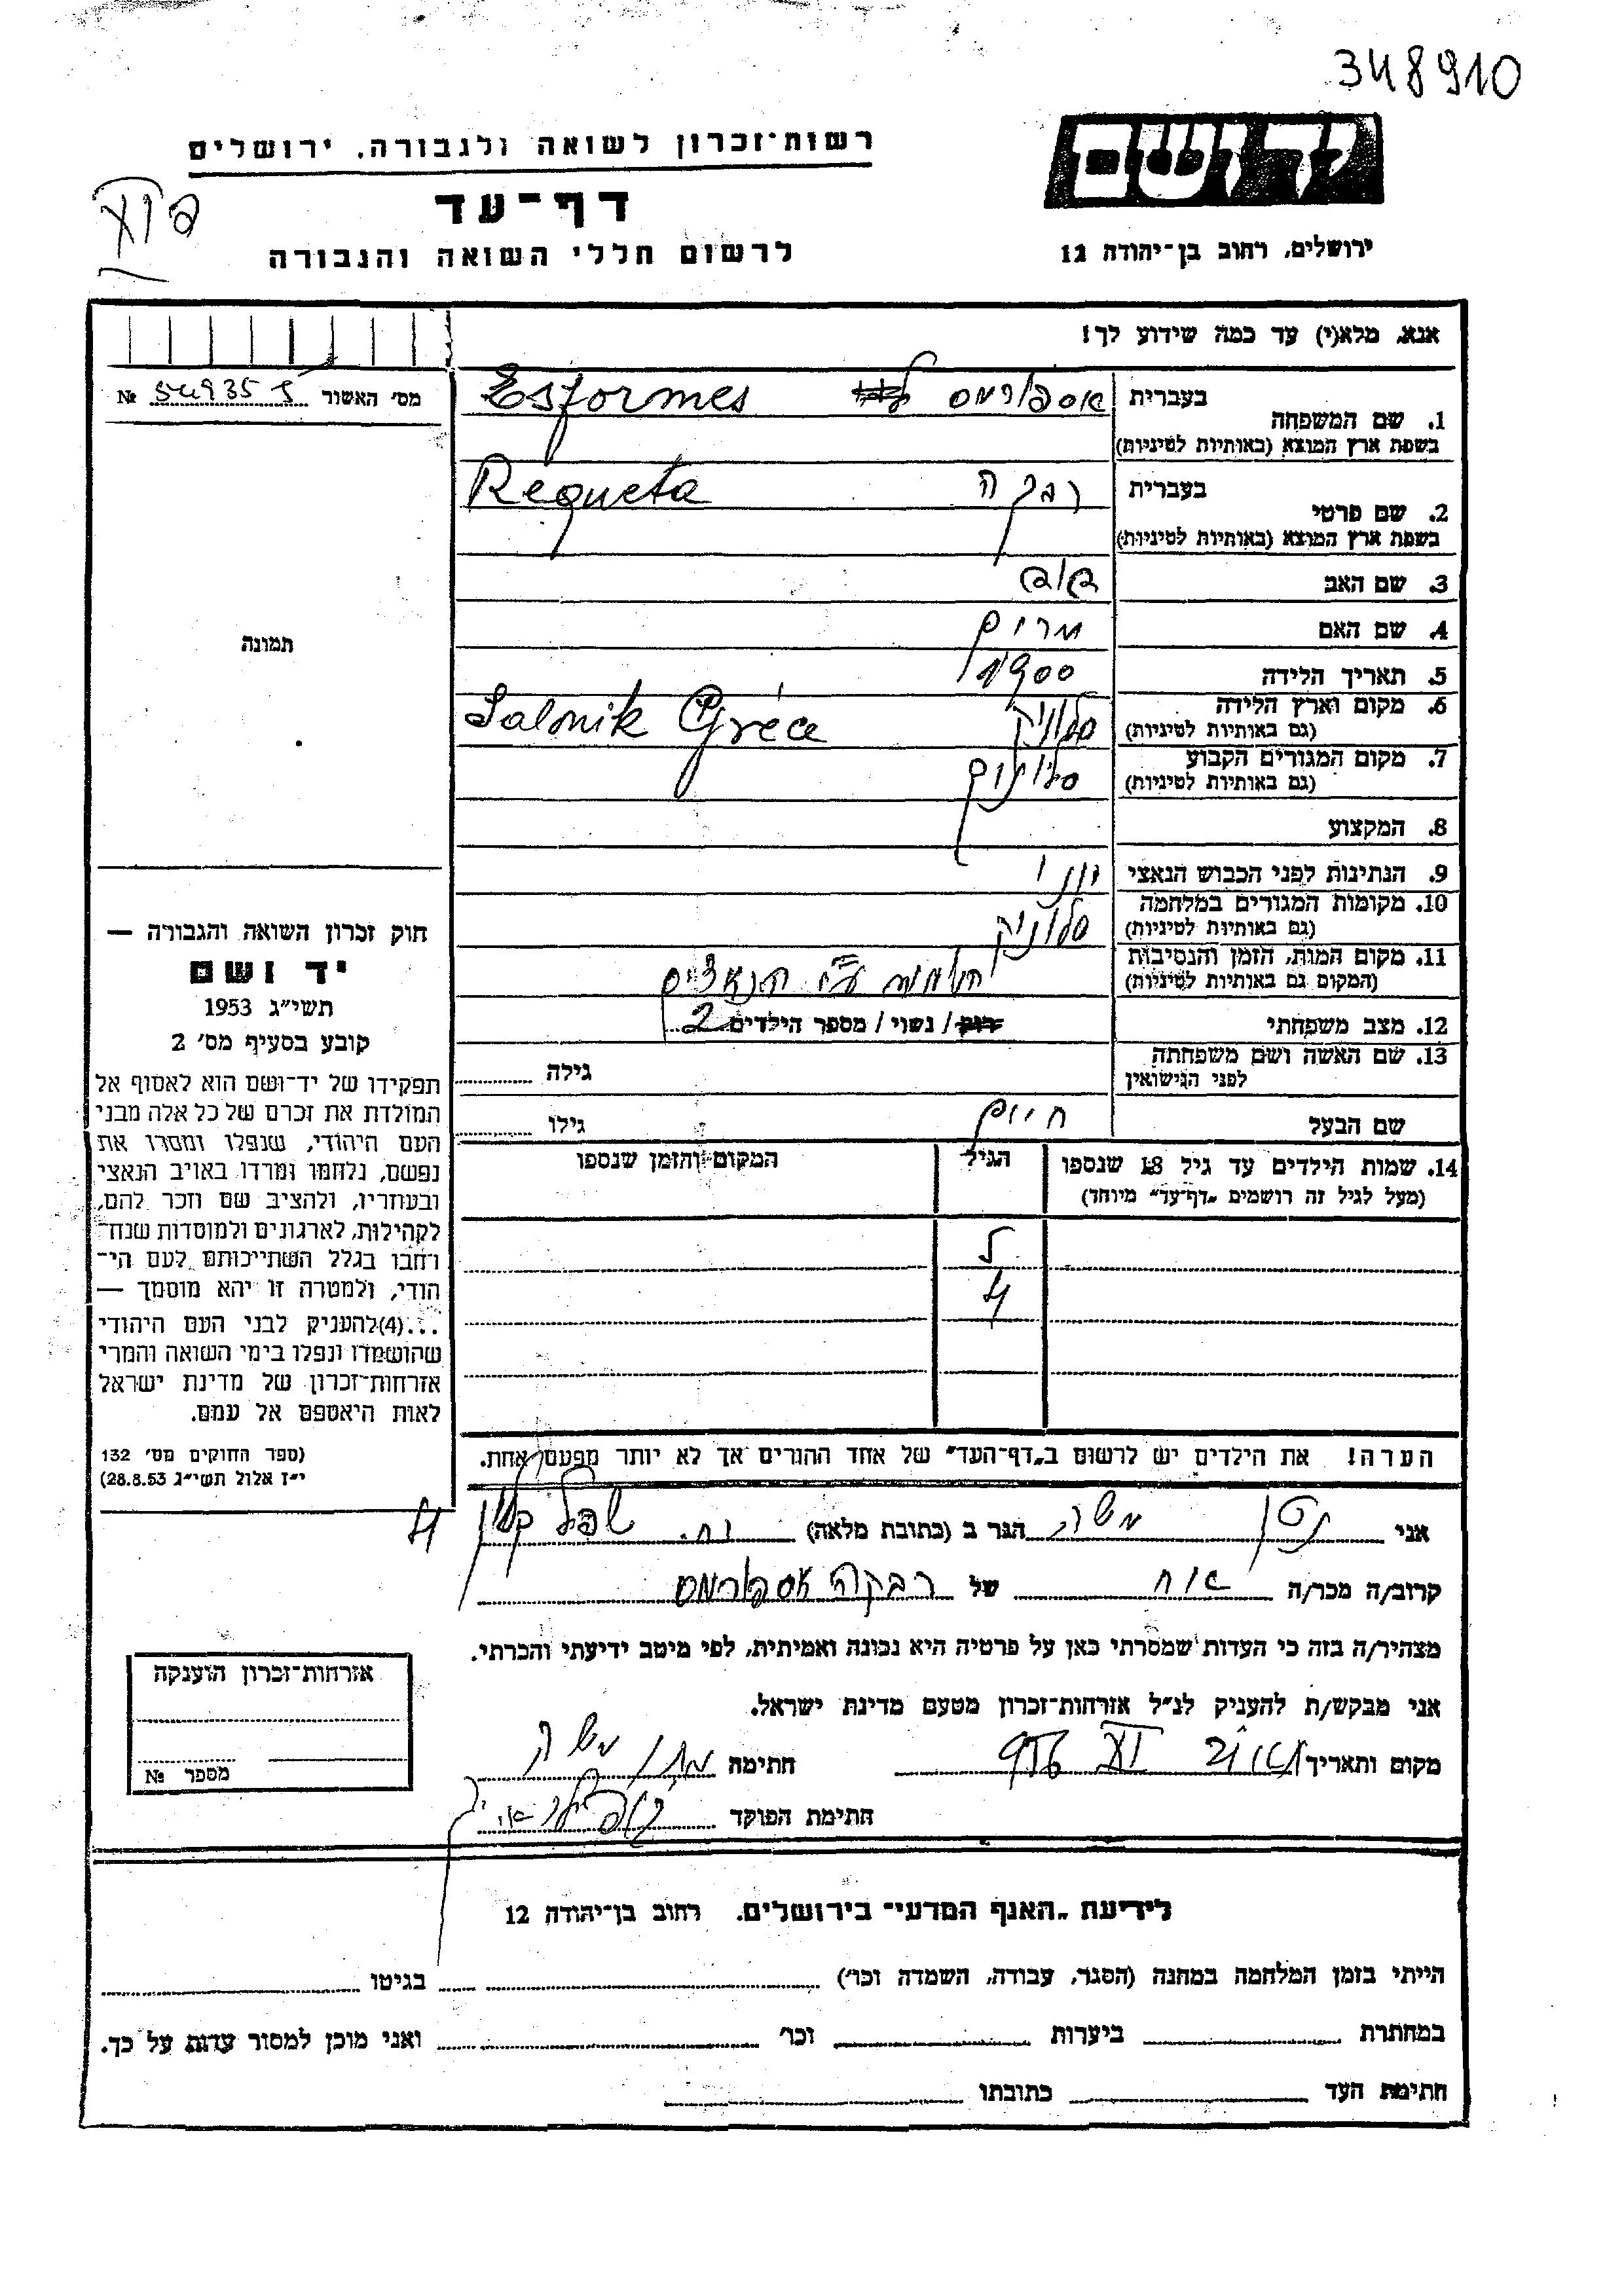 348910
יד ושם
רשות-זכרון לשואה ולגבורה, ירושלים
דף-עד
לרשום חללי השואה והגבורה
ירושלים, רחוב בן-יהודה 12
אנא, מלא(י) עד כמה שידוע לך!
מס' האשור № 54935
1. שם המשפחה בעברית אספורמס Esformes
בשפת ארץ המוצא (באותיות לטיניות)
2. שם פרטי בעברית רבקה Requeta
בשפת ארץ המוצא (באותיות לטיניות)
3. שם האב
4. שם האם מרים
5. תאריך הלידה 1900
6. מקום וארץ הלידה סלוניק Salonik Gréce
(גם באותיות לטיניות)
7. מקום המגורים הקבוע
(גם באותיות לטיניות)
8. המקצוע
9. הנתינות לפני הכבוש הנאצי יוני
10. מקומות המגורים במלחמה סלוניק
(גם באותיות לטיניות)
11. מקום המות, הזמן והנסיבות ע"י הנאצים
(המקום גם באותיות לטיניות)
12. מצב משפחתי רוק / נשוי / מספר הילדים 2
13. שם האשה ושם משפחתה גילה
לפני הנישואין
שם הבעל חיים גילו
14. שמות הילדים עד גיל 18 שנספו הגיל המקום והזמן שנספו
(מעל לגיל זה רושמים "דף-עד" מיוחד)
5
4
הערה! את הילדים יש לרשום ב"דף-העד" של אחד ההורים אך לא יותר מפעם אחת.
תמונה
חוק זכרון השואה והגבורה —
יד ושם
תשי"ג 1953
קובע בסעיף מס' 2
תפקידו של יד-ושם הוא לאסוף אל
המולדת את זכרם של כל אלה מבני
העם היהודי, שנפלו ומסרו את
נפשם, נלחמו ומרדו באויב הנאצי
ובעוזריו, ולהציב שם וזכר להם,
לקהילות, לארגונים ולמוסדות שנח-
רחבו בגלל השתייכותם לעם הי-
הודי, ולמטרה זו יהא מוסמך —
...(4)להעניק לבני העם היהודי
שהושמדו ונפלו בימי השואה והמרי
אזרחות-זכרון של מדינת ישראל
לאות היאספם אל עמם.
(ספר החוקים מס' 132
י"ז אלול תשי"ג 28.8.53)
אני משה הגר ב (כתובת מלאה) רח. 4
קרוב/ה מכר/ה אח של רבקה אספורמס
מצהיר/ה בזה כי העדות שמסרתי כאן על פרטיה היא נכונה ואמיתית, לפי מיטב ידיעתי והכרתי.
אני מבקש/ת להעניק לנ"ל אזרחות-זכרון מטעם מדינת ישראל.
מקום ותאריך חתימה משה
חתימת הפוקד
אזרחות-זכרון הוענקה
מספר №
לידיעת "האגף המדעי" בירושלים, רחוב בן-יהודה 12
הייתי בזמן המלחמה במחנה (הסגר, עבודה, השמדה וכו') בגיטו
במחתרת ביערות וכו' ואני מוכן למסור עדות על כך.
חתימת העד כתובתו